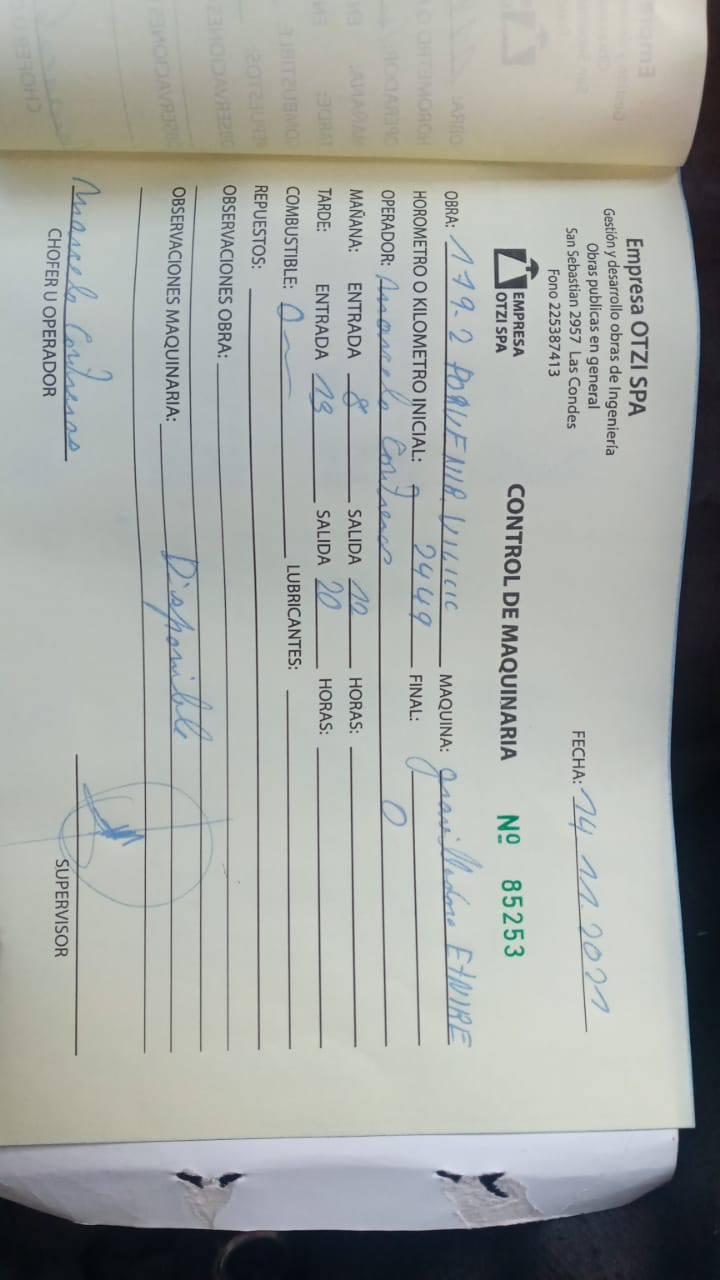 Empresa OTZI SPA
Gestión y desarrollo obras de Ingeniería
Obras publicas en general
San Sebastian 2957 Las Condes
Fono 225387413
FECHA: 14 11.2021
EMPRESA
OTZI SPA
CONTROL DE MAQUINARIA Nº 85253
OBRA: 179-2 PORVENIR. VILICIC MAQUINA: gravilladora ETNIRE
HOROMETRO O KILOMETRO INICIAL: 2449 FINAL:
OPERADOR: Marcelo Contreras 0
MAÑANA: ENTRADA 8 SALIDA 12 HORAS:
TARDE: ENTRADA 13 SALIDA 20 HORAS:
COMBUSTIBLE: 0 LUBRICANTES:
REPUESTOS:
OBSERVACIONES OBRA:
OBSERVACIONES MAQUINARIA: Disponible
Marcelo Contreras
CHOFER U OPERADOR
SUPERVISOR